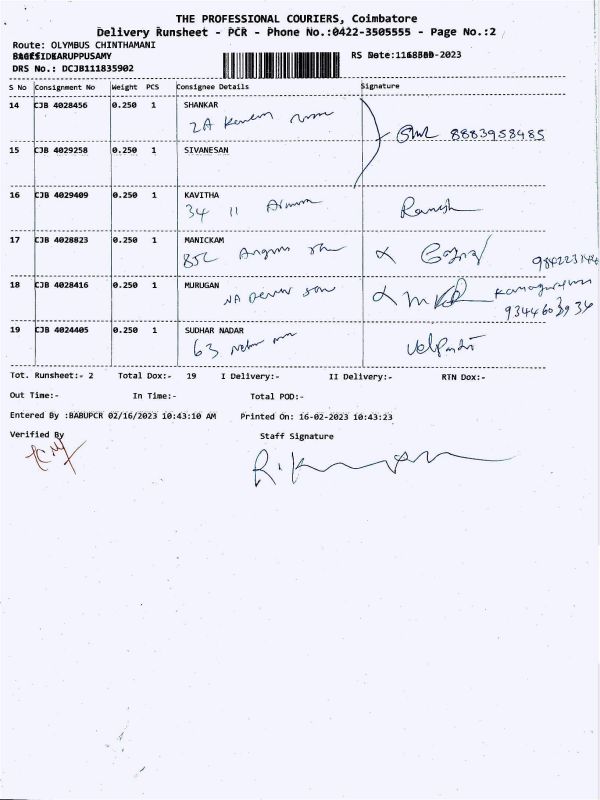 THE PROFESSIONAL COURIERS, Coimbatore
Delivery Runsheet - PCR - Phone No.:0422-3505555 - Page No.:2
Route: OLYMBUS CHINTHAMANI
KARUPPUSAMY
RS Date: -2023
DRS No.: DCJB111835902
S No Consignment No Weight PCS Consignee Details Signature
14 CJB 4028456 0.250 1 SHANKAR
2A
8883958485
15 CJB 4029258 0.250 1 SIVANESAN
16 CJB 4029409 0.250 1 KAVITHA
34 11 Ramesh
17 CJB 4028823 0.250 1 MANICKAM
18 CJB 4028416 0.250 1 MURUGAN
9344603936
19 CJB 4024405 0.250 1 SUDHAR NADAR
63
Tot. Runsheet:- 2 Total Dox:- 19 I Delivery:- II Delivery:- RTN Dox:-
Out Time:- In Time:- Total POD:-
Entered By :BABUPCR 02/16/2023 10:43:10 AM Printed On: 16-02-2023 10:43:23
Verified By Staff Signature